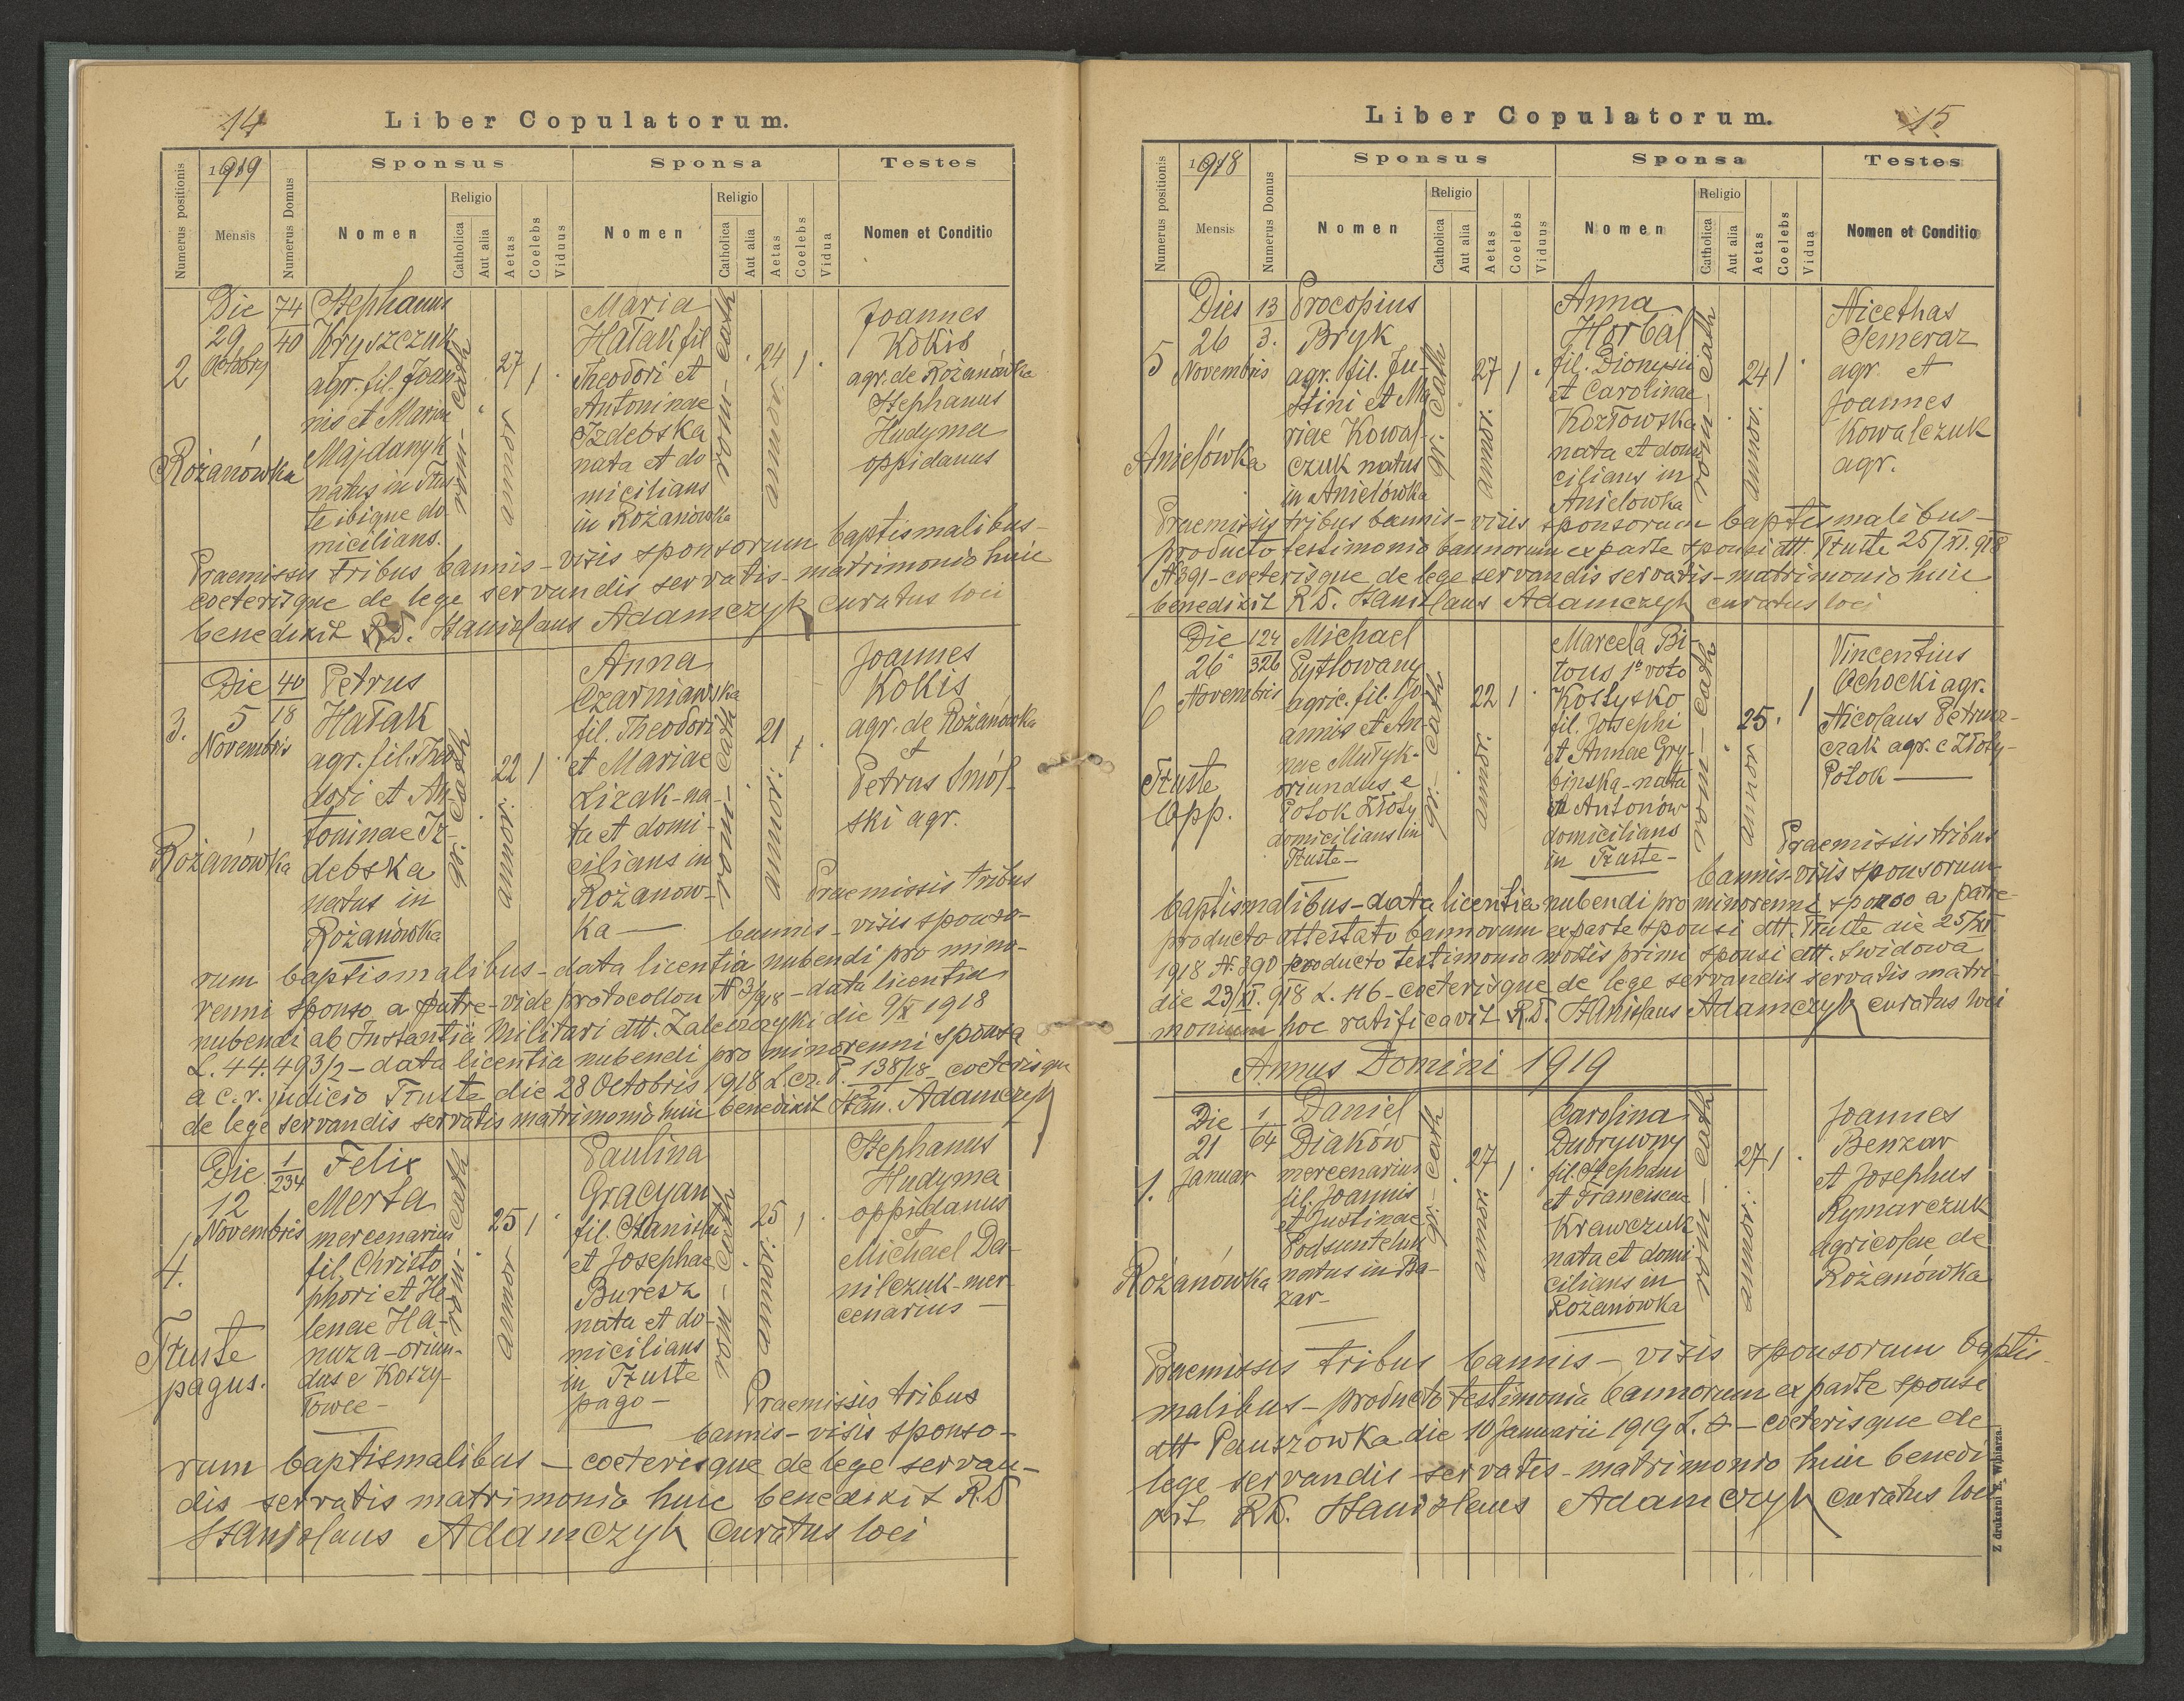 14
Liber Copulatorum.
Numerus positionis
1919
Mensis
Numerus Domus
Sponsus
Nomen
Religio
Catholica
Aut alia
Aetas
Coelebs
Viduus
Sponsa
Nomen
Religio
Catholica
Aut alia
Aetas
Coelebs
Vidua
Testes
Nomen et Conditio
2
Die
29
Octobry
Rożanówka
74
40
Stephanus
Kryszczuk
agr. fil. Joan-
nis et Mariae
Majdanyk
natus in Tłus-
te ibique do-
micilians.
rom - cath
27
annor.
1
Maria
Hałak fil
Theodori et
Antoninae
Izdebska
nata et do
micilians
in Rożanówka
rom - cath
24
annor.
1
Joannes
Kokis
agr. de Rożanówka
Stephanus
Hudyma
oppidanus
Praemissis tribus bannis - visis sponsorum baptismalibus -
coeterisque de lege servandis servatis - matrimonio huic
benedixit R.D. Stanislaus Adamczyk curatus loci
3.
Die
5
Novembris
Rożanówka
40
18
Petrus
Hałak
agr. fil. Theo
dori et An
toninae Iz-
debska
natus in
Rożanówka
gr. cath
22
annor.
1
Anna
Czarniawska
fil. Theodori
et Mariae
Lizak - na
ta et domi-
cilians in
Rożanow-
ka
rom - cath
21
annor.
1
Joannes
Kokis
agr. de Rożanówka
et
Petrus Smól-
ski agr.
Praemissis tribus
bannis - visis sponso-
rum baptismalibus - data licentia nubendi pro mino-
renni sponso a patre - vide protocollon N 3/918 - data licentia
nubendi ab Instantia Militari dtt. Zaleszczyki die 9/X 1918
L. 44.493/2 - data licentia nubendi pro minorenni sponsa
a c. r. judicio Tłuste die 28 Octobris 1918 L. cz. P. 138/18 - coeterisque
de lege servandis servatis matrimonio huic benedixit Stan. Adamczyk
4.
Die
12
Novembris
Tłuste
pagus.
1
234
Felix
Merta
mercenarius
fil. Christo
phori et He-
lenae Ha-
nuza - oriun-
dus e Koszy-
łowce -
rom - cath
25
annor
1
Paulina
Gracyan
fil. Stanislai
et Josephae
Buresz
nata et do-
micilians
in Tłuste
pago -
rom - cath
25
annor.
1
Stephanus
Hudyma
oppidanus
et
Michael Da-
nilczuk - mer-
cenarius -
Praemissis tribus
bannis - visis sponso-
rum baptismalibus - coeterisque de lege servan-
dis servatis matrimonio huic benedixit R.D
Stanislaus Adamczyk Curatus loci
Liber Copulatorum.
15
Numerus positionis
1918
Mensis
Numerus Domus
Sponsus
Nomen
Religio
Catholica
Aut alia
Aetas
Coelebs
Viduus
Sponsa
Nomen
Religio
Catholica
Aut alia
Aetas
Coelebs
Vidua
Testes
Nomen et Conditio
5
Dies
26
Novembris
Anielówka
13
3.
Procopius
Bryk
agr. fil. Ju-
stini et Ma
riae Kowal-
czuk natus
in Anielówka
gr. cath
27
annor.
1
Anna
Horbal
fil. Dionysii
et Carolinae
Kozłowska
nata et domi
cilians in
Anielowka
rom - cath
24
annor.
1
Nicethas
Semeraz
agr. et
Joannes
Kowalczuk
agr.
Praemissis tribus bannis - visis sponsorum baptismalibus -
producto testimonio bannorum ex parte sponsi dtt. Tłuste 25/XI. 918
N 391 - coeterisque de lege servandis servatis - matrimonio huic
benedixit R.D. Stanislaus Adamczyk curatus loci
6
Die
26
Novembris
Tłuste
Opp.
124
326
Michael
Pytlowany
agric. fil. Jo
annis et An-
nae Mułyk -
oriundus e
Potok Złoty
domicilians in
Tłuste -
gr. - cath
22
annor.
1
Marcela Bi-
tous 1º voto
Kostysko
fil. Josephi
et Annae Gry-
bińska - nata
in Antonów
domicilians
in Tłuste -
rom - cath
25.
annor
1
Vincentius
Ochocki agr.
Nicolaus Petrusz-
czak agr. e Złoty-
Potok
Praemissis tribus
bannis - visis sponsorum
baptismalibus - data licentia nubendi pro minorenni sponso a patre -
producto attestato bannorum ex parte sponsi dtt. Tłuste die 25/XI
1918 N. 390 producto testimonio mortis primi sponsi dtt. Swidowa
die 23/XI. 918 L. 116 - coeterisque de lege servandis servatis matri-
monium hoc ratificavit R.D. Stanislaus Adamczyk curatus loci
Annus Domini 1919
1.
Die
21
Januar
Rożanówka
1
64
Daniel
Diaków
mercenarius
fil. Joannis
et Justinae
natus in Ba-
zar -
gr. - cath
27
annor
1
Carolina
Dubrywny
fil. Stephani
et Franciscae
Krawczuk
nata et domi
cilians in
Rożanówka
rom - cath
27
annor.
1
Joannes
Benzar
et Josephus
Rymarczuk
agricolae de
Rożanówka
Praemissis tribus bannis - visis sponsorum baptis-
malibus - producto testimonio bannorum ex parte sponsi
dtt Pauszowka die 10 Januarii 1919 L. - coeterisque de
lege servandis servatis - matrimonio huic benedi
xit R.D. Stanislaus Adamczyk Curatus loci
Z drukarni E. Winiarza.